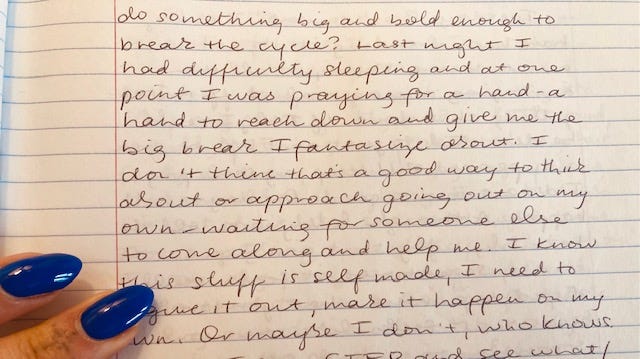 do something big and bold enough to
break the cycle? Last night I
had difficulty sleeping and at one
point I was praying for a hand - a
hand to reach down and give me the
big break I fantasize about. I
don't think that's a good way to think
about or approach going out on my
own - waiting for someone else
to come along and help me. I know
this stuff is self made, I need to
it out, make it happen on my
own. Or maybe I don't, who knows
I STEP and see what